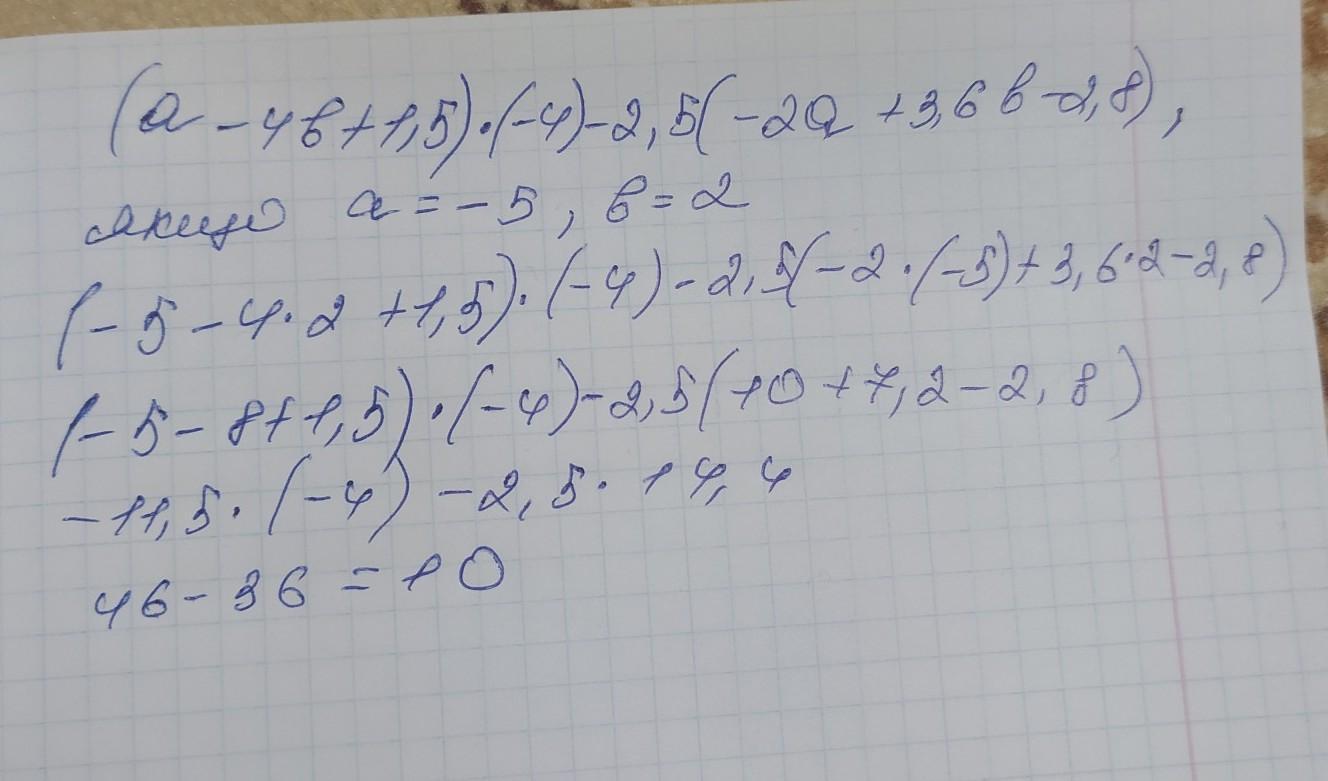 (a - 4b + 1,5)·(-4) - 2,5(-2a + 3,6b - 2,8),
якщо a = -5, b = 2
(-5 - 4·2 + 1,5)·(-4) - 2,5(-2·(-5) + 3,6·2 - 2,8)
(-5 - 8 + 1,5)·(-4) - 2,5(10 + 7,2 - 2,8)
-11,5·(-4) - 2,5·14,4
46 - 36 = 10